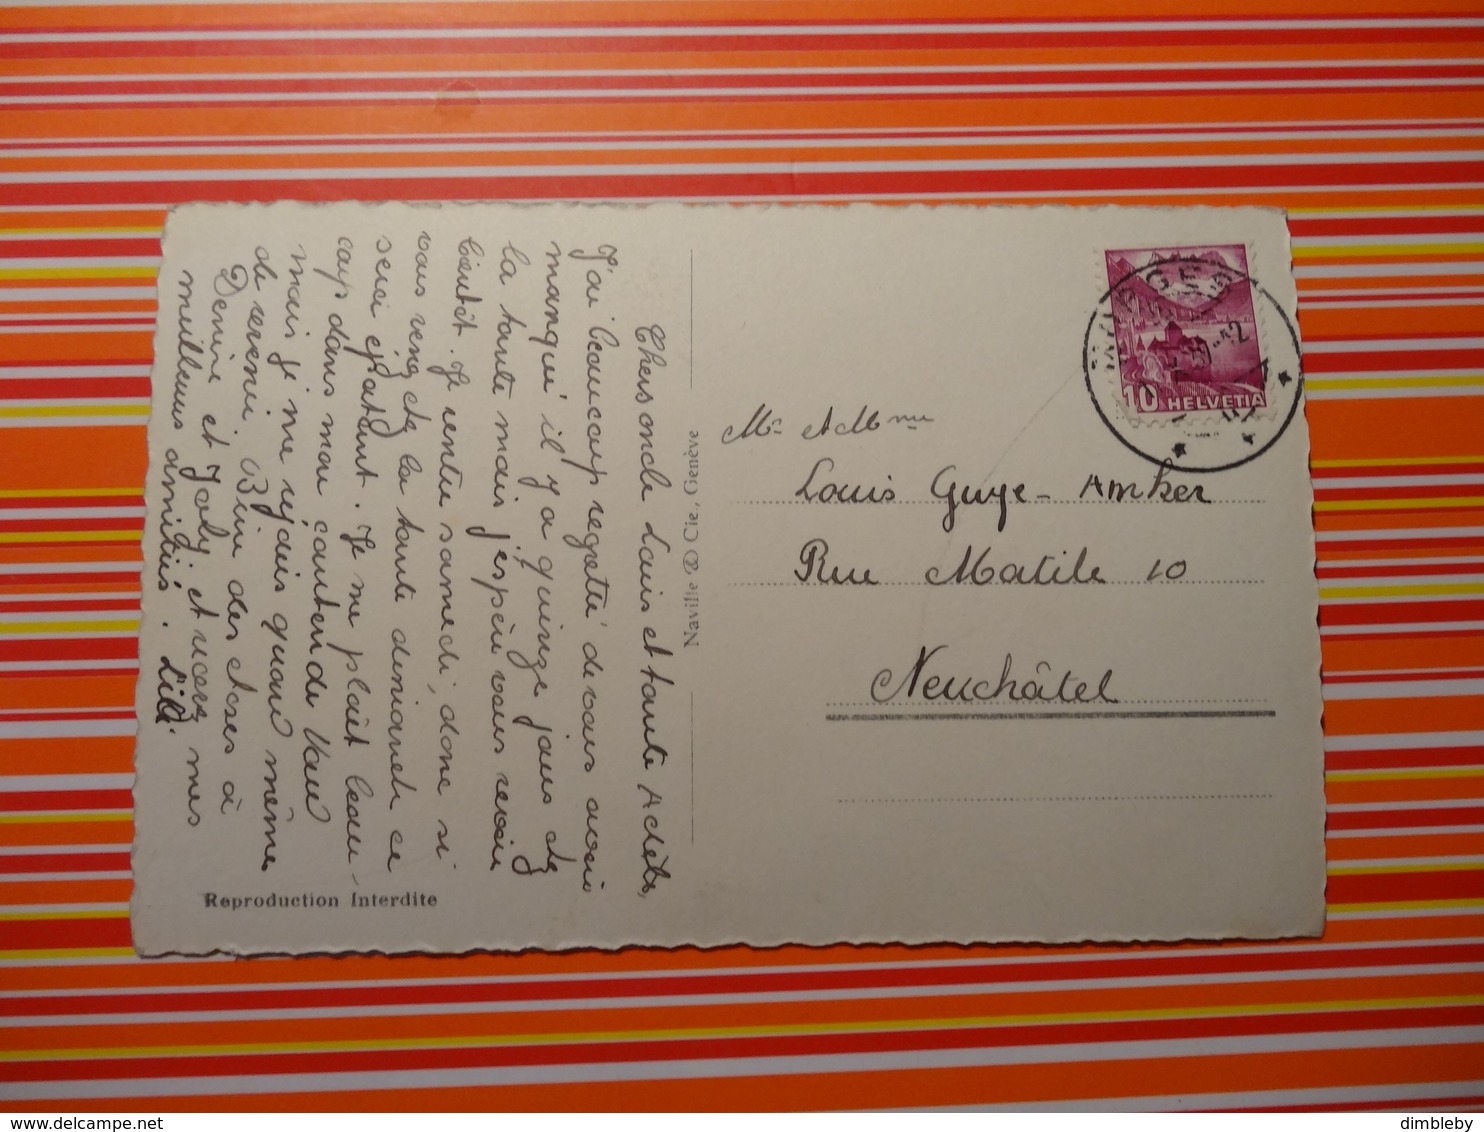 Chers oncle Louis et tante Adèle,
J'ai beaucoup regretté de vous avoir
manqué il y a quinze jours chez
la tante mais j'espère vous revoir
bientôt. Je rentre samedi, donc si
vous venez chez la tante dimanche ce
serait épatant. Je me plaît beau-
coup dans mon canton de Vaud
mais je me réjouis quand même
de revenir. Bien des choses à
Denise et Joly et recevez mes
meilleures amitiés. Lili.
Reproduction Interdite
Naville & Cie, Genève
Mr et Mme
Louis Guye-Amker
Rue Matile 10
Neuchâtel
10 HELVETIA